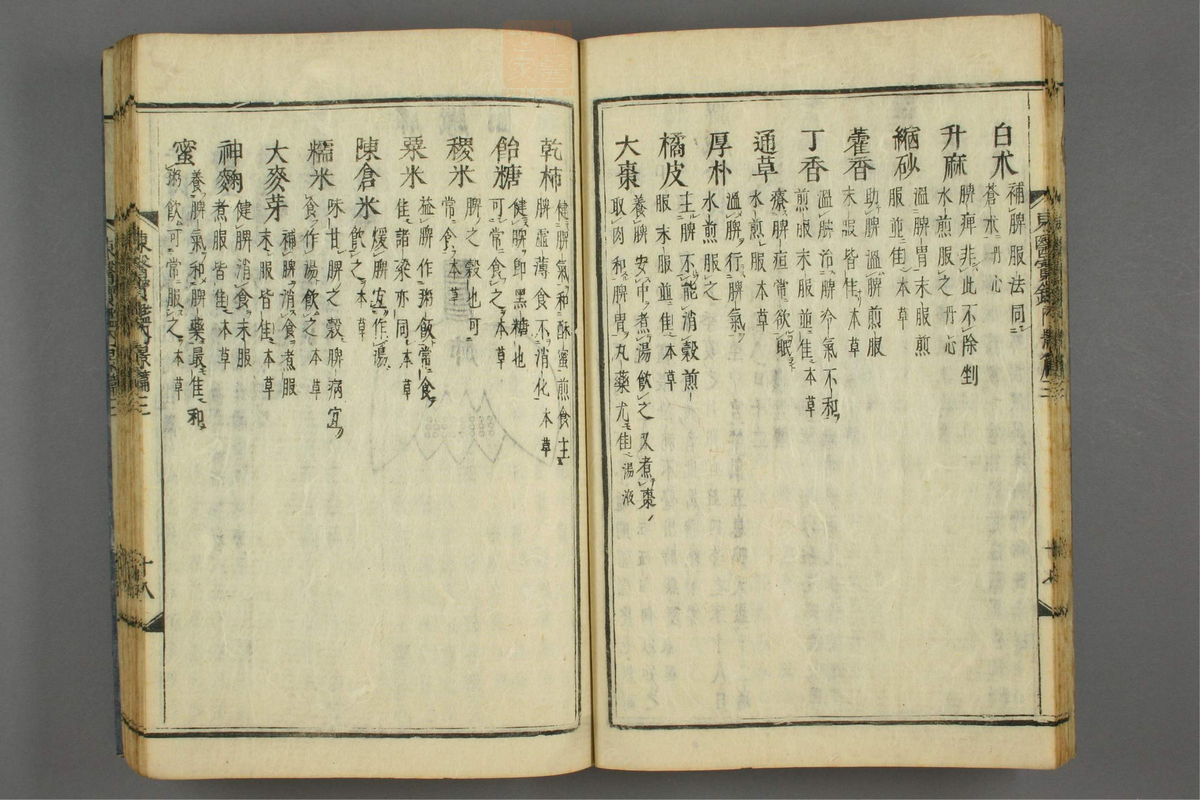 白朮
補脾服法同
蒼朮丹心
升麻
脾痺非此不除剉
水煎服之丹心
縮砂
溫脾胃末服煎
服並佳本草
藿香
助脾溫脾煎服
末服皆佳本草
丁香
溫脾冷脾冷氣不和
煎服末服並佳本草
通草
療脾疸常欲眠
水煎服本草
厚朴
溫脾行脾氣
水煎服之
橘皮
主脾不能消穀煎
服末服並佳本草
大棗
養脾安中煮湯飲之又煮棗
取肉和脾胃丸藥尤佳湯液
乾柿
健脾氣和酥蜜煎食主
脾虛薄食不消化本草
飴糖
健脾即黑糖也
可常食之本草
稷米
脾之穀也可
常食本草
粟米
益脾作粥飯常食
佳諸粱亦同本草
陳倉米
煖脾宜作湯
飲之本草
糯米
味甘脾之穀脾病宜
食作湯飲之本草
大麥芽
補脾消食煮服
末服皆佳本草
神麴
健脾消食末服
煮服皆佳本草
蜜
養脾氣和脾藥最佳和
粥飲可常服之本草
十八